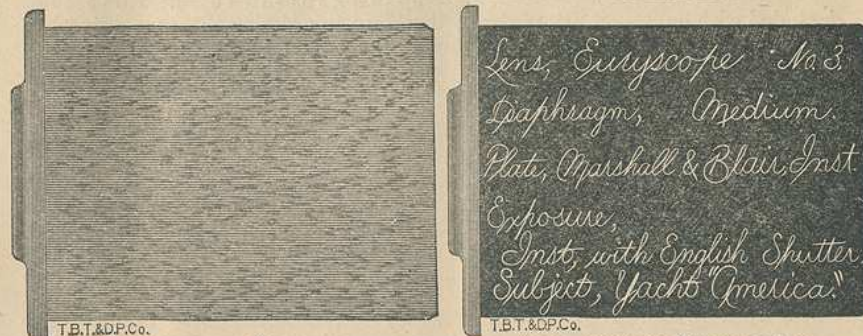 Lens, Euryscope No. 3.
Diaphragm, Medium.
Plate, Marshall & Blair, Inst.
Exposure,
Inst, with English Shutter.
Subject, Yacht "America."
T.B.T.&D.P.Co.
T.B.T.&D.P.Co.